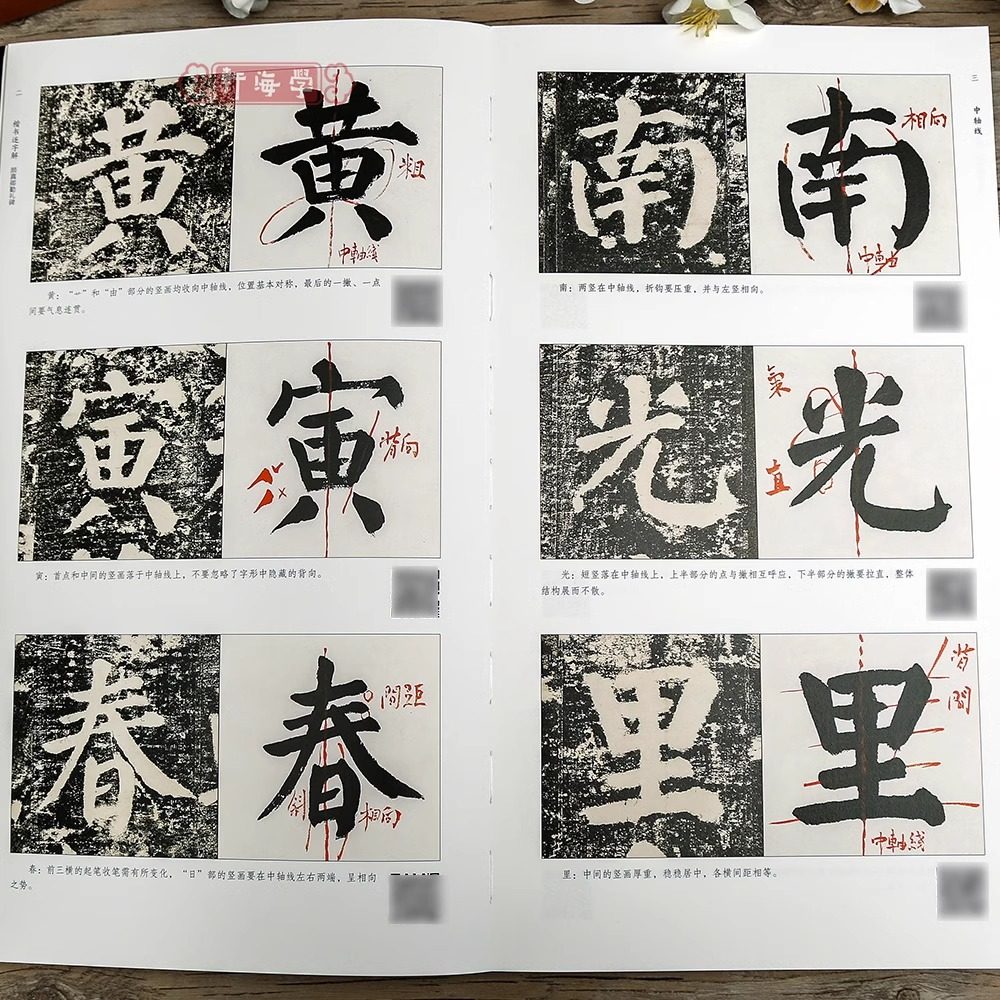 軒海學
二
楷书逐字解 颜真卿勤礼碑
黄
黄
粗
中軸綫
黄：“艹”和“由”部分的竖画均收向中轴线，位置基本对称，最后的一撇、一点
间要气息连贯。
寅
寅
背向
寅：首点和中间的竖画落于中轴线上，不要忽略了字形中隐藏的背向。
春
春
間距
斜
相向
春：前三横的起笔收笔需有所变化，“日”部的竖画要在中轴线左右两端，呈相向
之势。
三
中轴线
南
南
相向
中軸
南：两竖在中轴线，折钩要压重，并与左竖相向。
光
光
氣
直
光：短竖落在中轴线上，上半部分的点与撇相互呼应，下半部分的撇要拉直，整体
结构展而不散。
里
里
背
間
中軸綫
里：中间的竖画厚重，稳稳居中，各横间距相等。